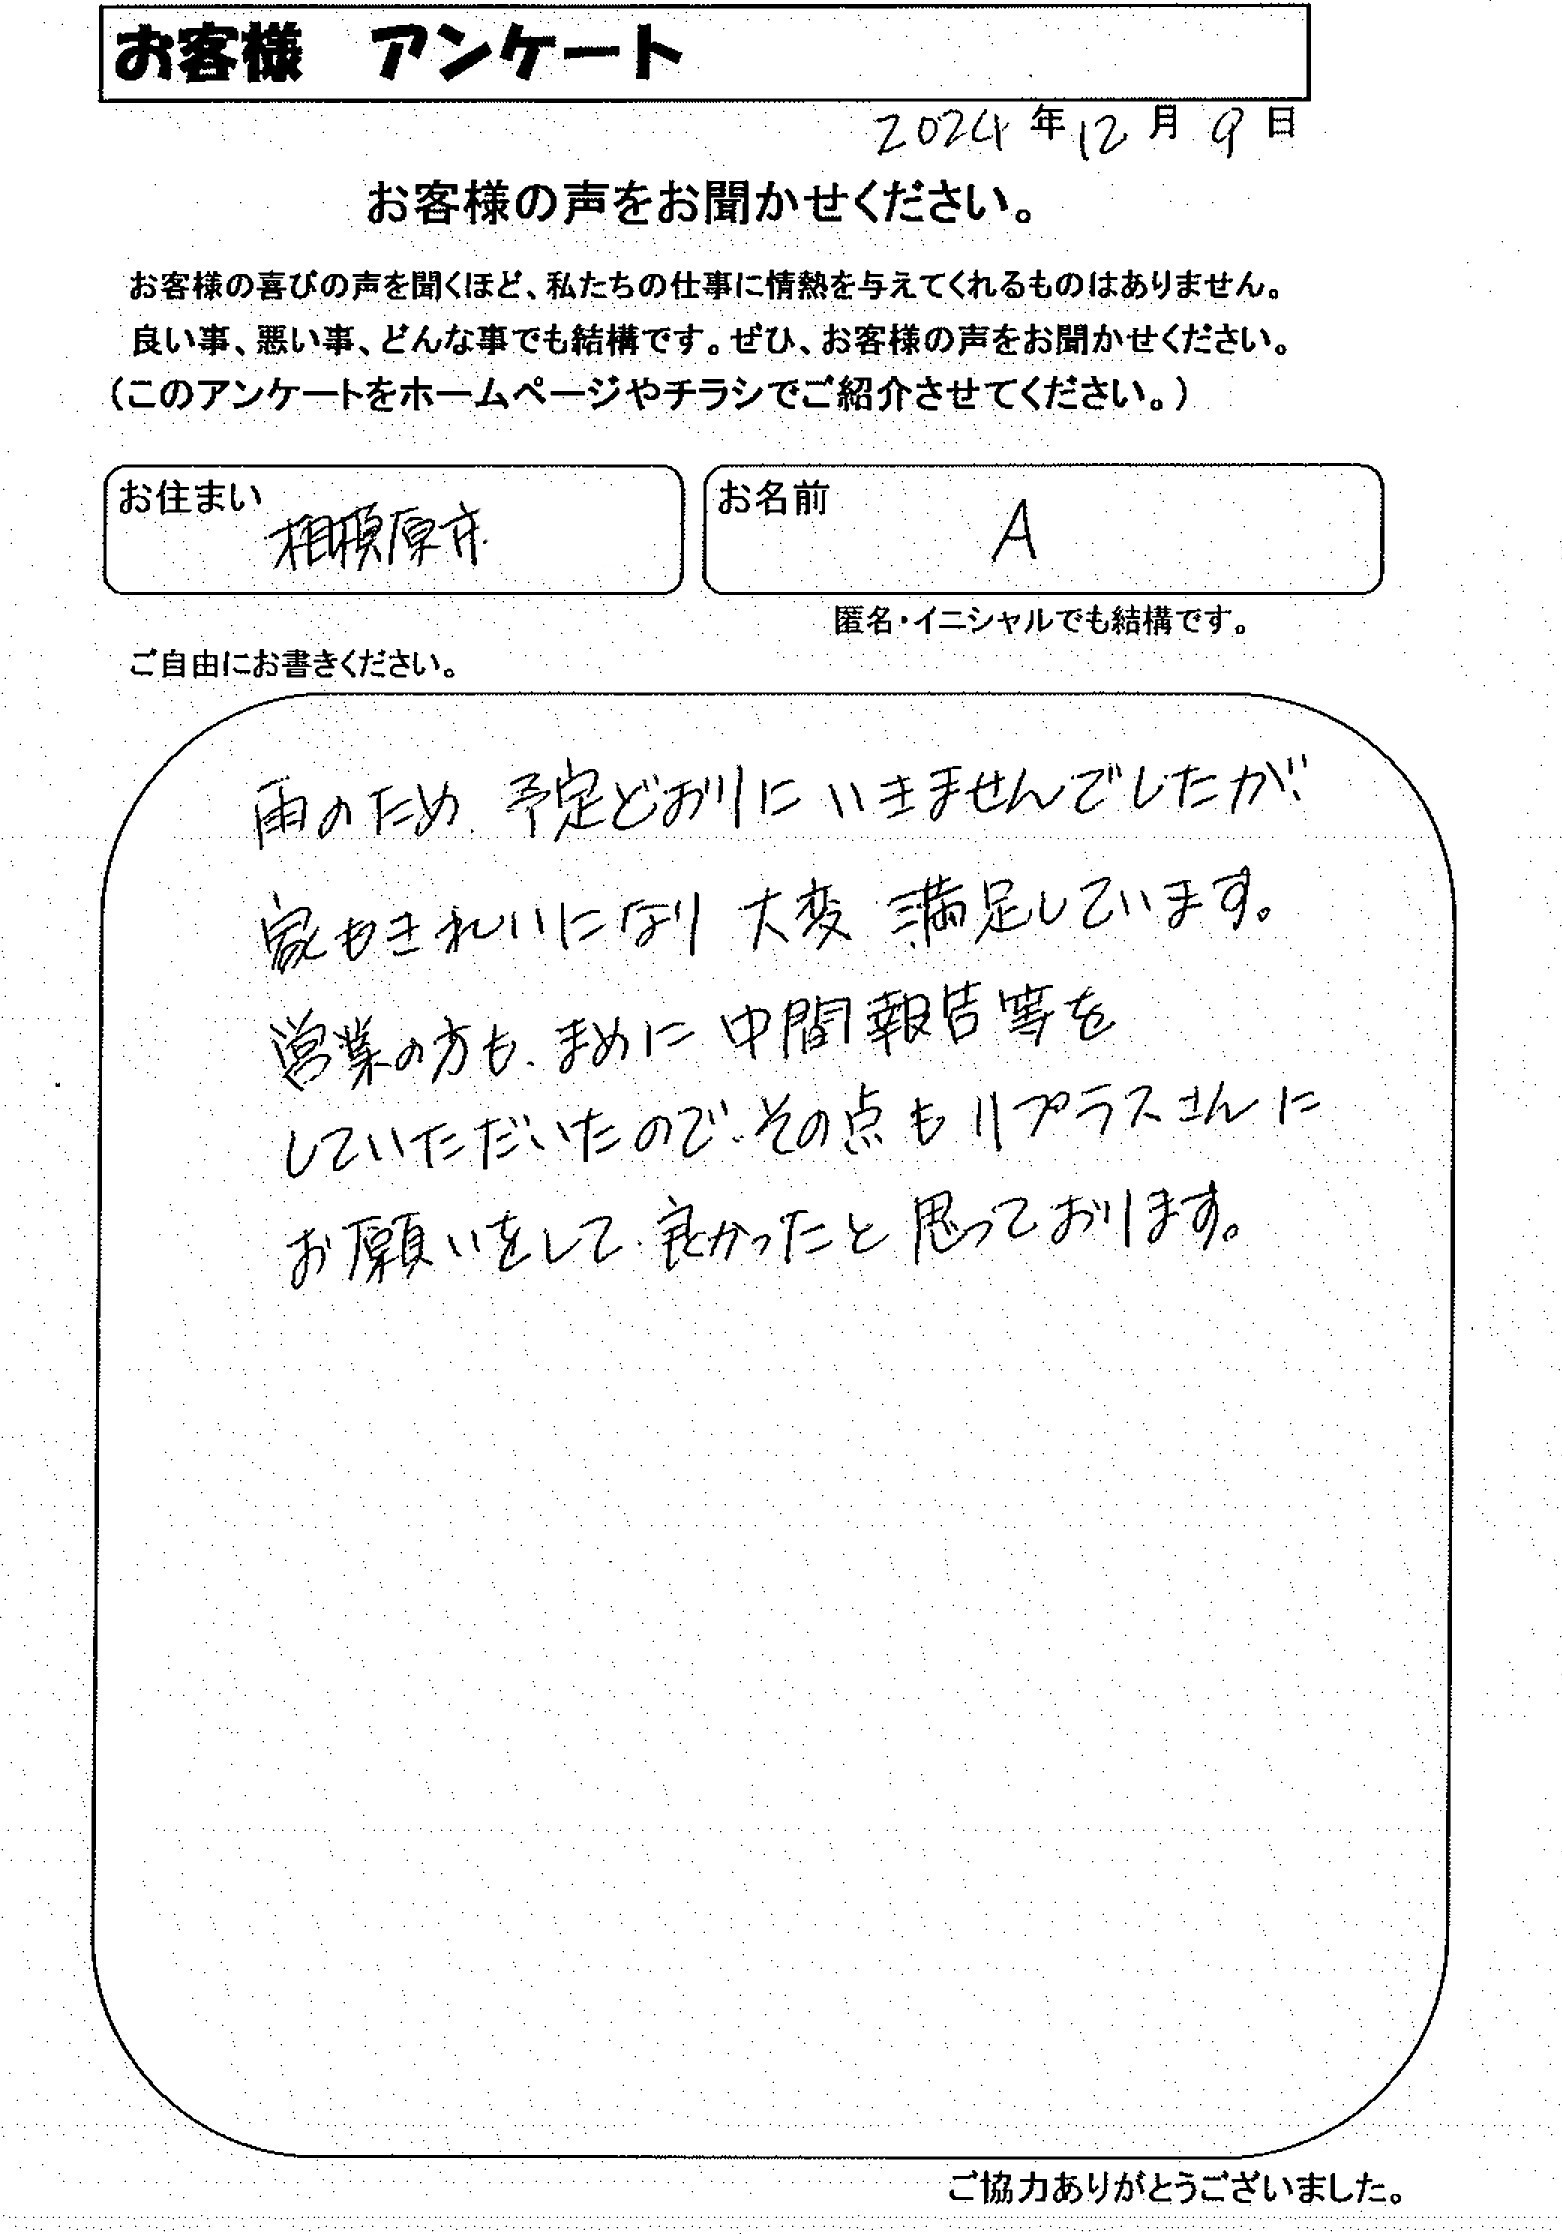 お客様 アンケート
2024 年 12 月 9 日
お客様の声をお聞かせください。
お客様の喜びの声を聞くほど、私たちの仕事に情熱を与えてくれるものはありません。
良い事、悪い事、どんな事でも結構です。ぜひ、お客様の声をお聞かせください。
（このアンケートをホームページやチラシでご紹介させてください。）
お住まい 相模原市
お名前 A
匿名・イニシャルでも結構です。
ご自由にお書きください。
雨のため、予定どおりにいきませんでしたが、
家もきれいになり 大変 満足しています。
営業の方も、まめに 中間報告等を
していただいたので、その点もリプラスさんに
お願いをして、良かったと思っております。
ご協力ありがとうございました。